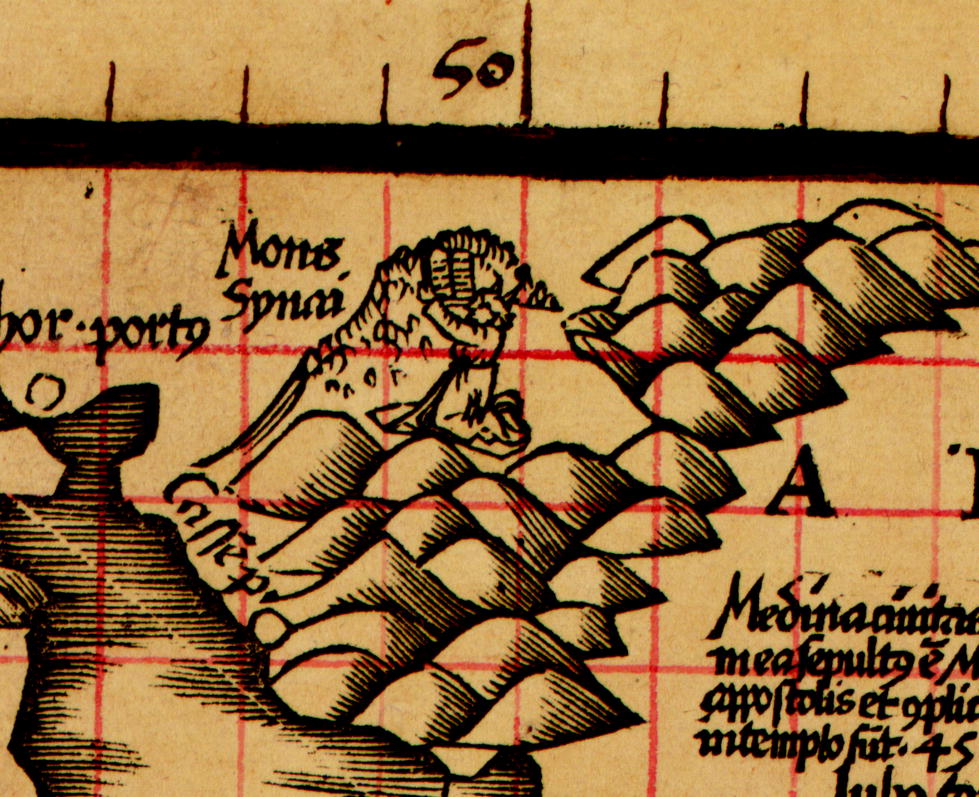 50
Mons
Synai
hor · portꝯ
A
Medina ciuita
mea sepultꝯ ē M
appostolis et ꝯplic
in templo sūt · 45